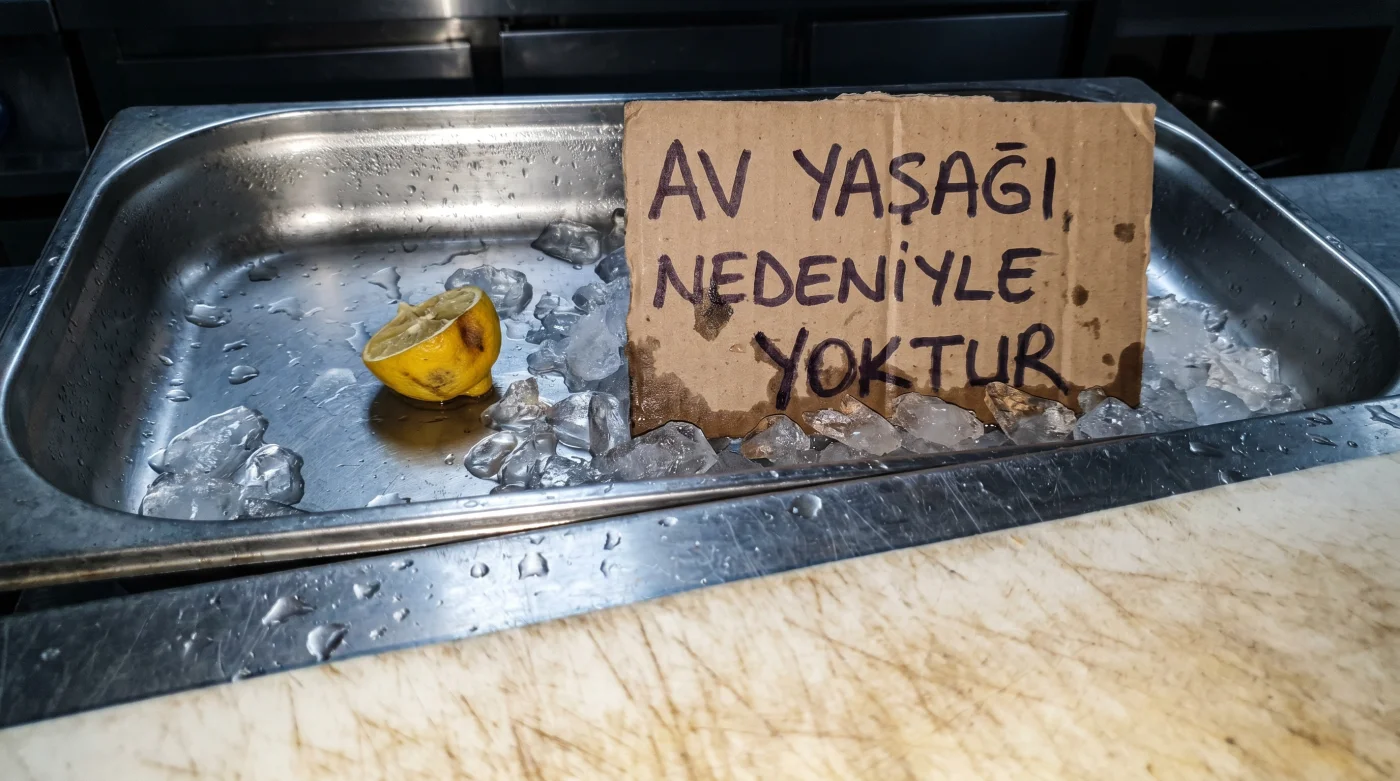 AV YAŞAĞI
NEDENİYLE
YOKTUR